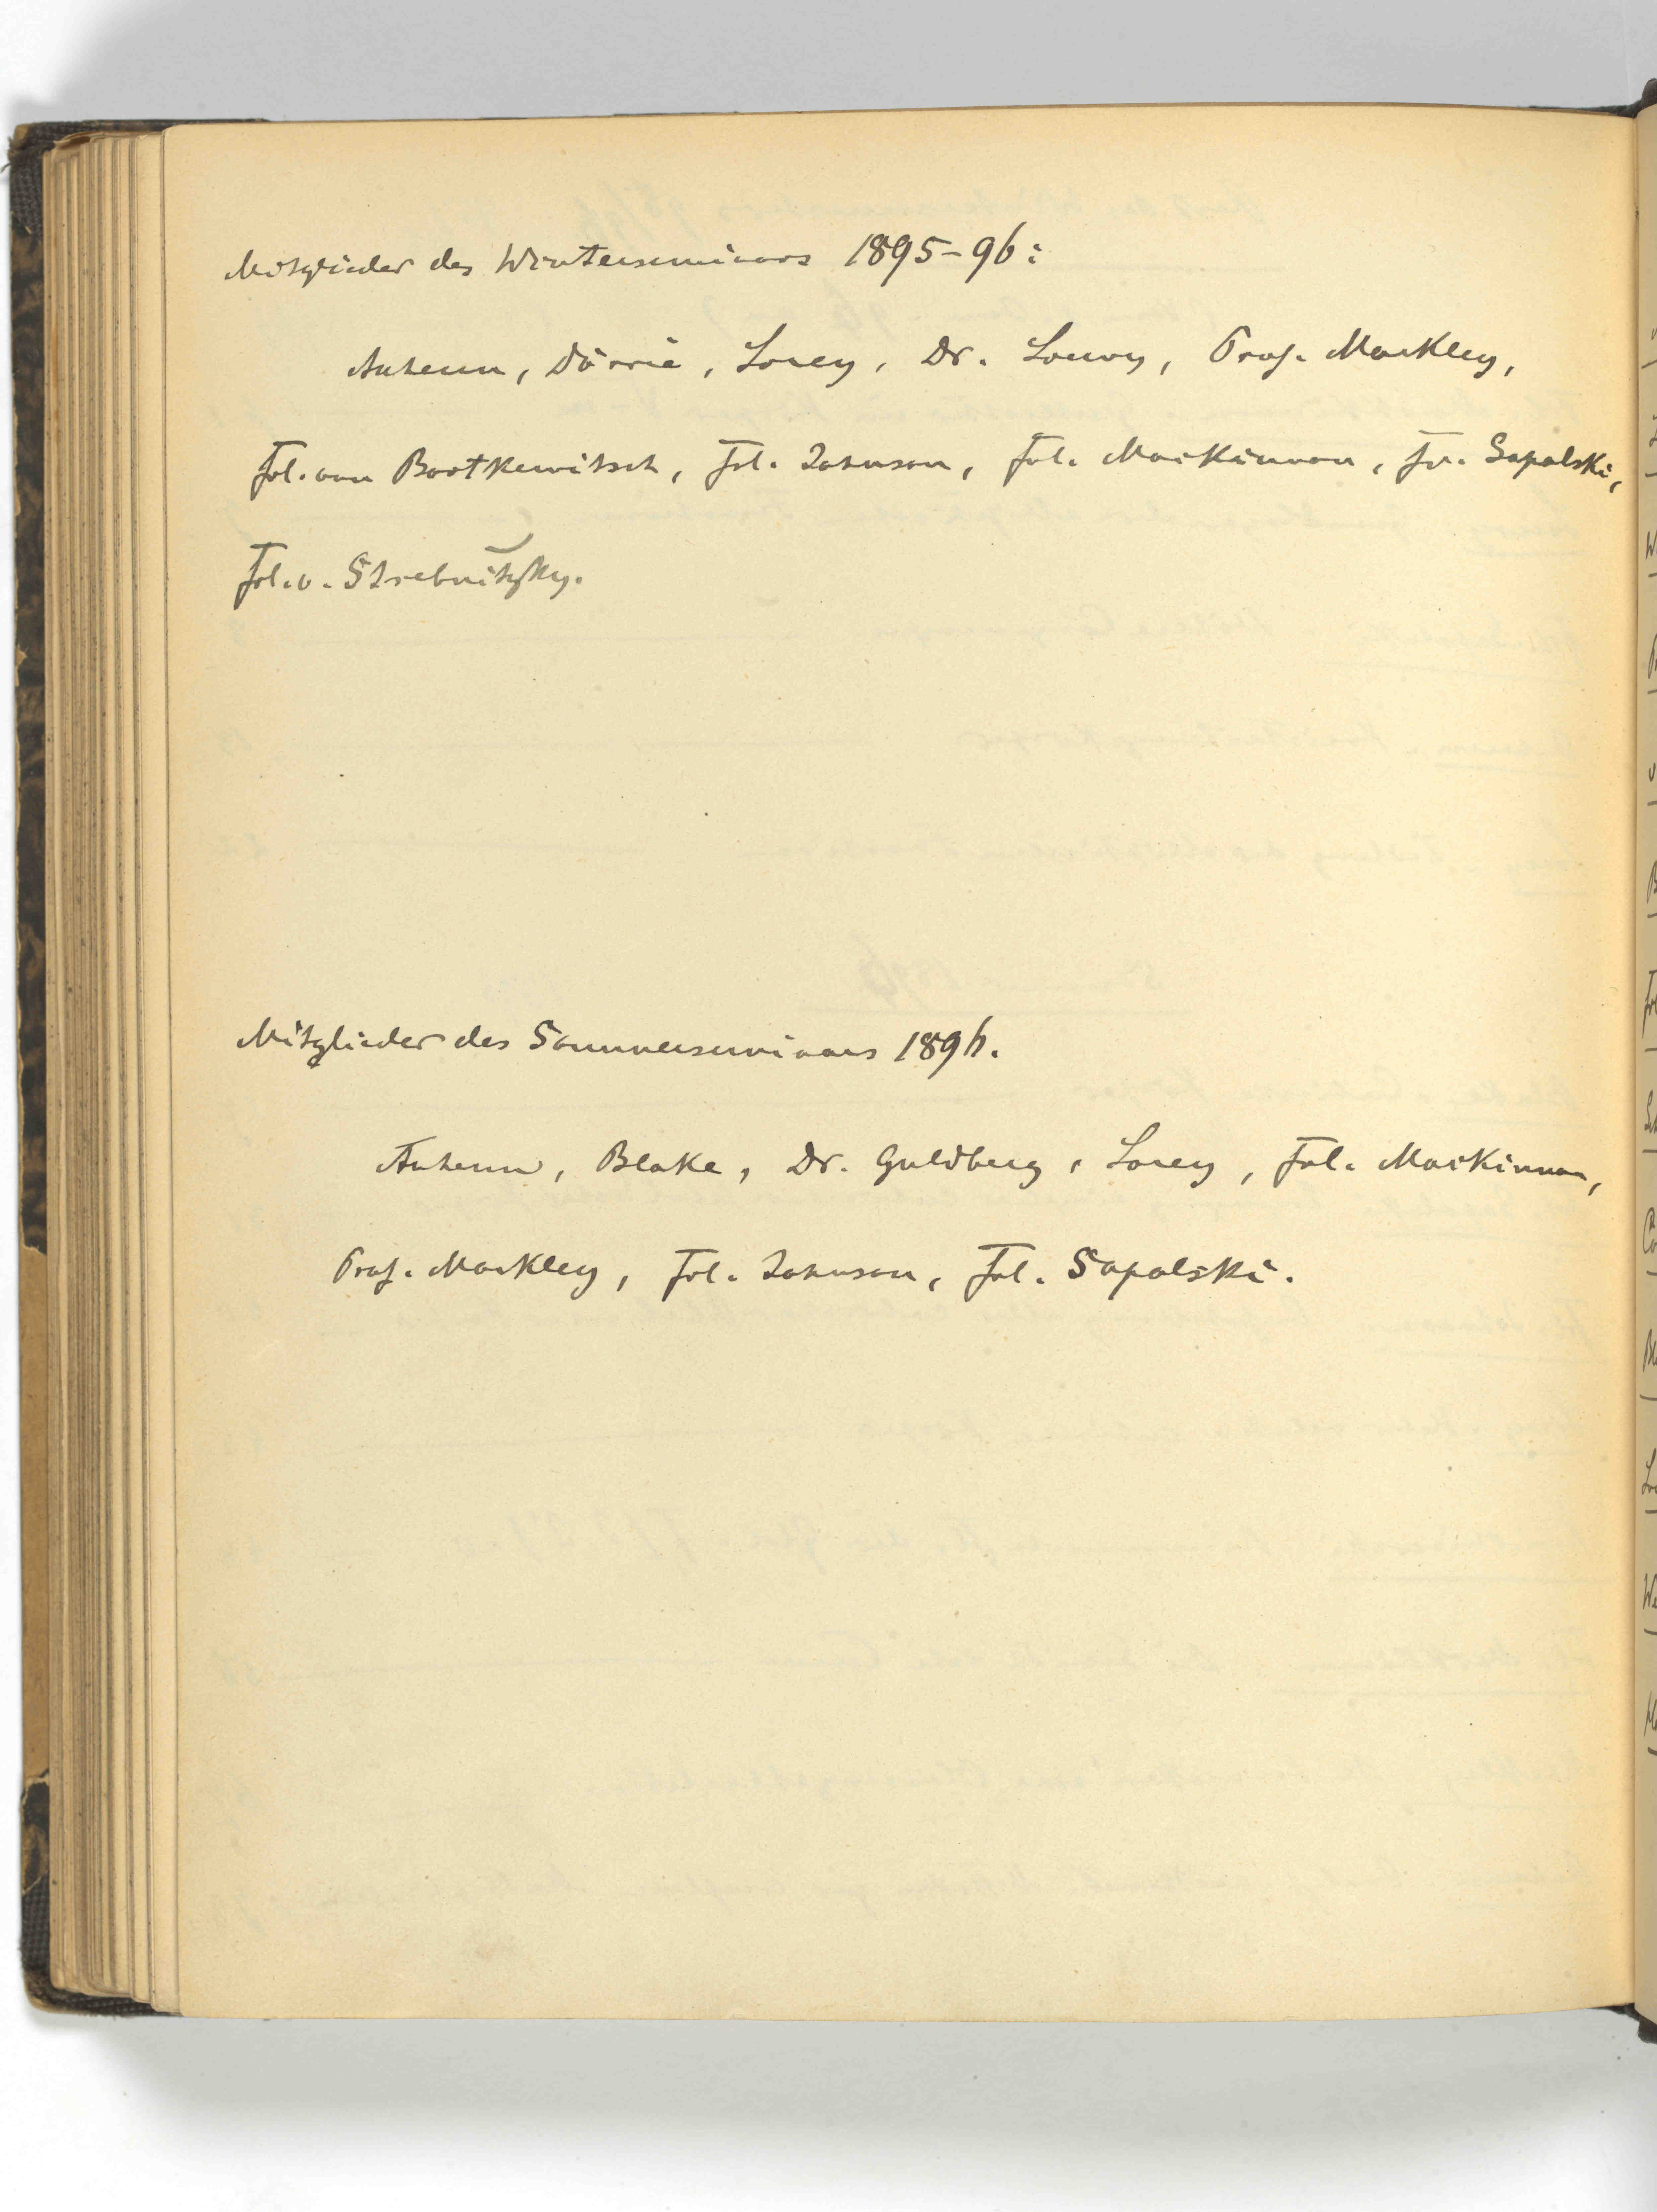 Mitglieder des Winterseminars 1895-96:
Anhenn, Dörrie, Lorey, Dr. Loewy, Prof. Markley,
Frl. von Bortkewitsch, Frl. Johnson, Frl. MacKinnon, Fr. Sapolski,
Frl. v. Strebnitzky.
Mitglieder des Sommerseminars 1896.
Anhenn, Blake, Dr. Guldberg, Lorey, Frl. MacKinnon,
Prof. Markley, Frl. Johnson, Frl. Sapolski.